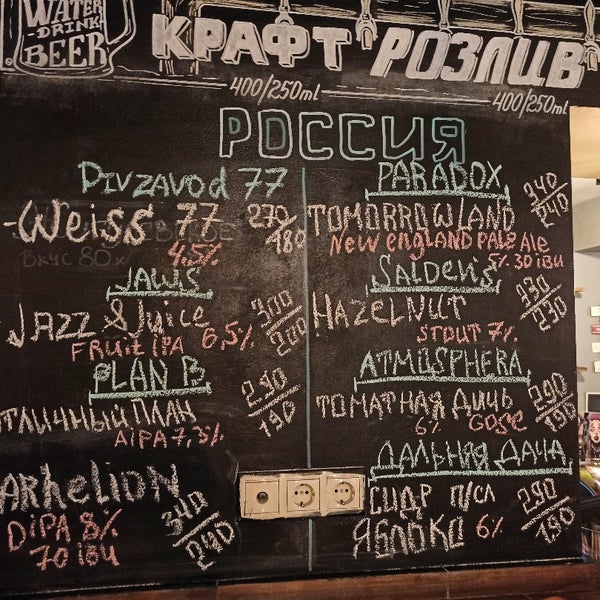 WATER
-DRINK-
BEER
КРАФТ РОЗЛИВ
400/250ml
400/250ml
РОССИЯ
PIVZAVOD 77
-Weiss 77 270/180
4,5%
ВКУС 80
JAWS
JAZZ & JUICE 300/200
FRUIT IPA 6,5%
PLAN B
ОТЛИЧНЫЙ ПЛАН 290/190
AIPA 7,3%
arhelion 340/240
DIPA 8%
70 ibu
PARADOX
TOMORROWLAND 340/240
New england pale Ale
5% 30 ibu
Salden's
HAZELNUT 330/230
STOUT 7%
ATMOSPHERA
ТОМАТНАЯ ДИЧЬ 290/190
6% Gose
ДАЛЬНЯЯ ДАЧА
СИДР П/СЛ 290/190
ЯБЛОКО 6%